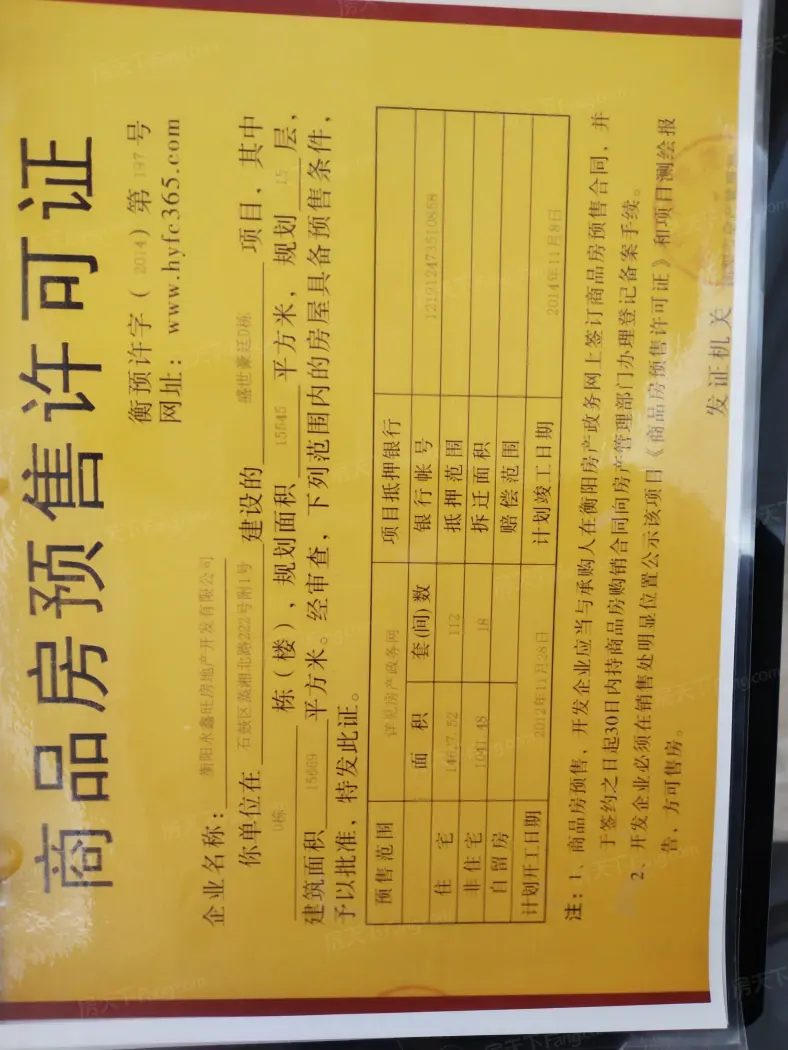 商品房预售许可证
衡预许字（2014）第197号
网址：www.hyfc365.com
企业名称：衡阳永鑫旺房地产开发有限公司
你单位在石鼓区蒸湘北路222号附1号建设的盛世豪廷D栋项目，其中
D栋栋（楼），规划面积15545平方米，规划15层，
建筑面积15669平方米。经审查，下列范围内的房屋具备预售条件，
予以批准，特发此证。
预售范围 详见房产政务网 项目抵押银行
面积 套(间)数 银行帐号 121912473510858
住宅 14627.52 112 抵押范围
非住宅 1041.48 18 拆迁面积
自留房 赔偿范围
计划开工日期 2012年11月28日 计划竣工日期 2014年11月8日
注：1、商品房预售，开发企业应当与承购人在衡阳房产政务网上签订商品房预售合同，并
于签约之日起30日内持商品房购销合同向房产管理部门办理登记备案手续。
2、开发企业必须在销售处明显位置公示该项目《商品房预售许可证》和项目测绘报
告，方可售房。
发证机关
房天下 Fang.com